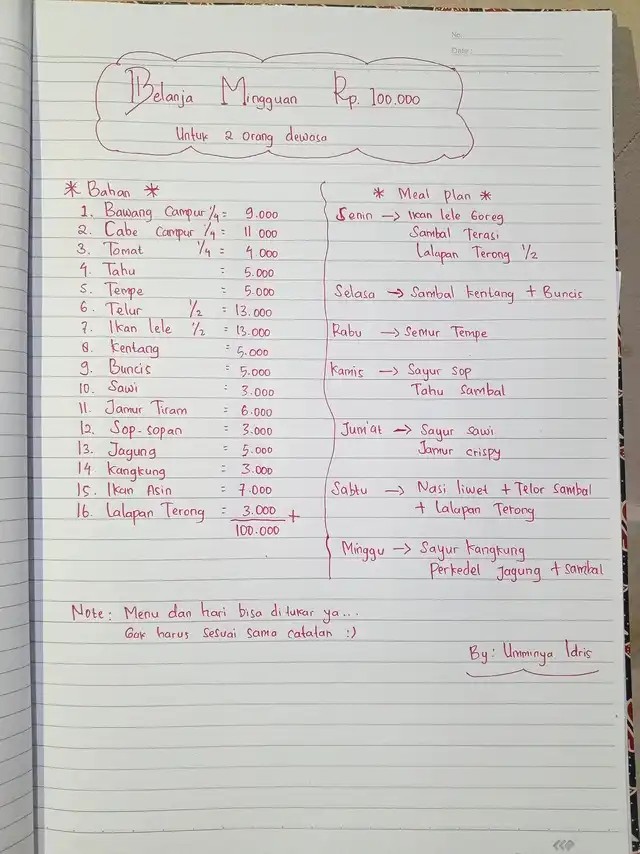 No.
Date:
Belanja Mingguan Rp. 100.000
Untuk 2 orang dewasa
* Bahan *
1. Bawang Campur 1/4 = 9.000
2. Cabe Campur 1/4 = 11.000
3. Tomat 1/4 = 4.000
4. Tahu = 5.000
5. Tempe = 5.000
6. Telur 1/2 = 13.000
7. Ikan lele 1/2 = 13.000
8. Kentang = 5.000
9. Buncis = 5.000
10. Sawi = 3.000
11. Jamur Tiram = 6.000
12. Sop-sopan = 3.000
13. Jagung = 5.000
14 Kangkung = 3.000
15. Ikan Asin = 7.000
16. Lalapan Terong = 3.000 +
100.000
* Meal plan *
Senin → Ikan lele Goreg
Sambal Terasi
Lalapan Terong 1/2
Selasa → Sambal kentang + Buncis
Rabu → Semur Tempe
Kamis → Sayur sop
Tahu sambal
Jum'at → Sayur sawi
Jamur crispy
Sabtu → Nasi liwet + Telor sambal
+ Lalapan Terong
Minggu → Sayur Kangkung
Perkedel Jagung + sambal
Note : Menu dan hari bisa ditukar ya...
Gak harus sesuai sama catatan :)
By : Umminya Idris